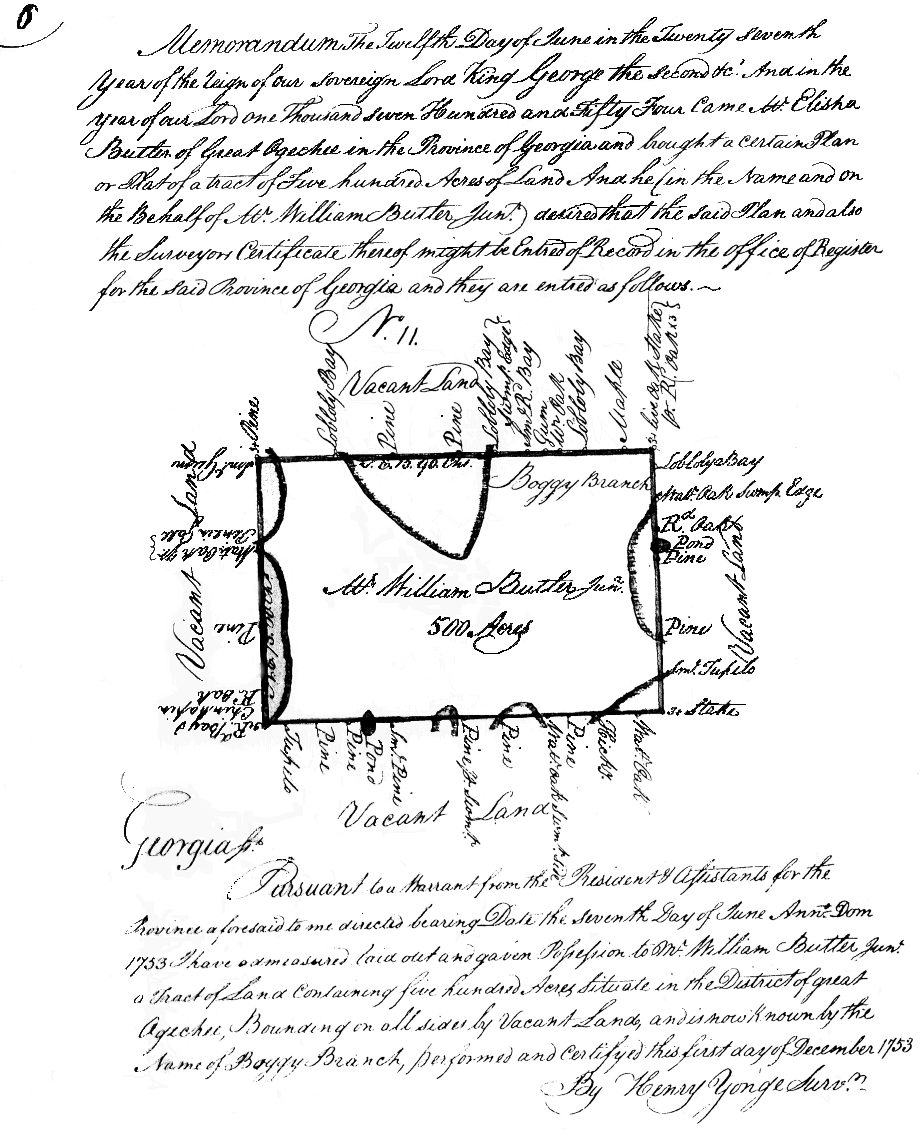 6
Memorandum The Twelfth Day of June in the Twenty Seventh
Year of the Reign of our Sovereign Lord King George the Second &c. And in the
year of our Lord one Thousand Seven Hundred and Fifty Four Came Mr. Elisha
Butler of Great Ogechee in the Province of Georgia and brought a certain Plan
or Plat of a tract of Five hundred Acres of Land And he (in the Name and on
the Behalf of Mr. William Butler Junr.) desired that the said Plan and also
the Surveyors Certificate thereof might be Entred of Record in the office of Register
for the said Province of Georgia and they are entred as follows.~
No. 11.
Vacant Land
Pine
Lobloly Bay
Pine
Pine
Lobloly Bay
Swamp Edge
Sm. R. Bay
Gum
Wr. Oak
Lobloly Bay
Maple
live Oak Stake
Boggy Branch
Lobloly Bay
Watr. Oak Swamp Edge
Rd. Oak
Pond
Pine
Pine
Sml. Tupilo
3x Stake
Vacant Land
Mr. William Butler Junr.
500 Acres
Vacant Land
Pine
Chinkapin
Tupilo
Pine
Pine
Pond
Sml. Pine
Pine & Swamp
Pine
Watr. Oak Swamp Side
Pine
Hickr.
Watr. Oak
Vacant Land
Georgia ss.
Pursuant to a Warrant from the President & Assistants for the
Province aforesaid to me directed bearing Date the Seventh Day of June Anno. Dom
1753 I have admeasured laid out and gaven Possession to Mr. William Butler Junr.
a Tract of Land Containing five hundred Acres Situate in the District of great
Ogechee, Bounding on all sides by Vacant Land, and is now Known by the
Name of Boggy Branch, performed and Certifyed this first day of December 1753
By Henry Yonge Survr.